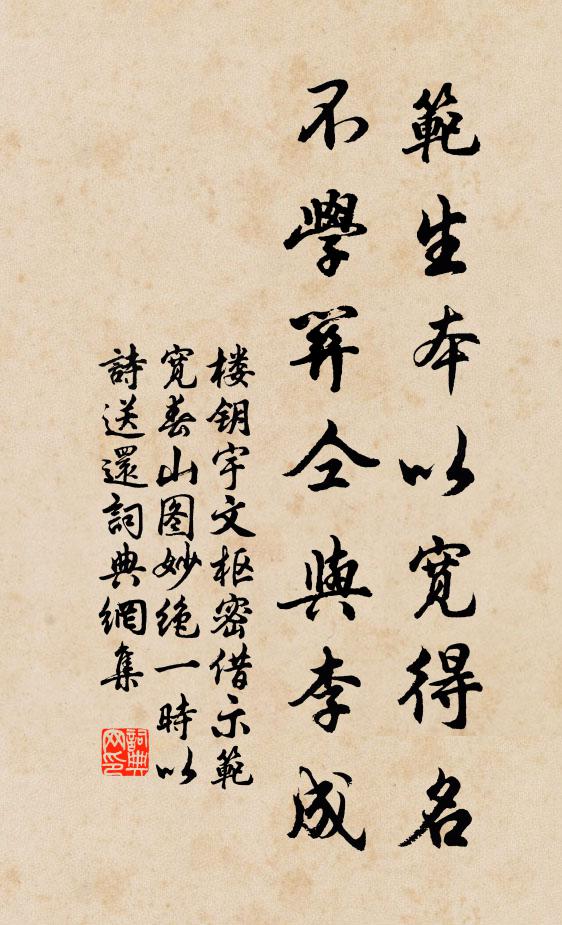 範生本以寬得名
不學關仝與李成
楼钥宇文枢密借示範
寬春山图妙絕一時以
詩送還詞典網集
詞典网印